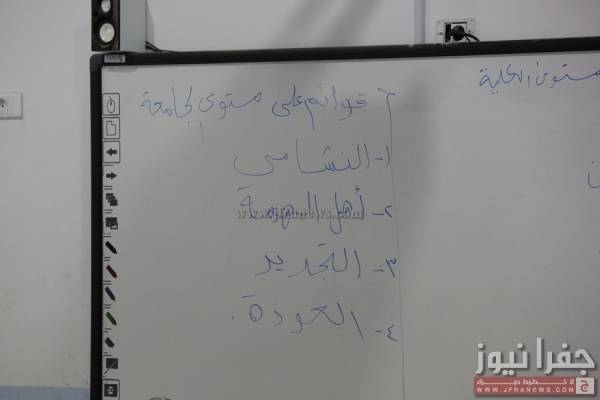 مستوى الكلية
* قوائم على مستوى الجامعة
١- النشامى
٢- أهل الهمة
٣- التجديد
٤- العودة.
www.jfranews.com
جفرا نيوز
WWW.JFRANEWS.COM